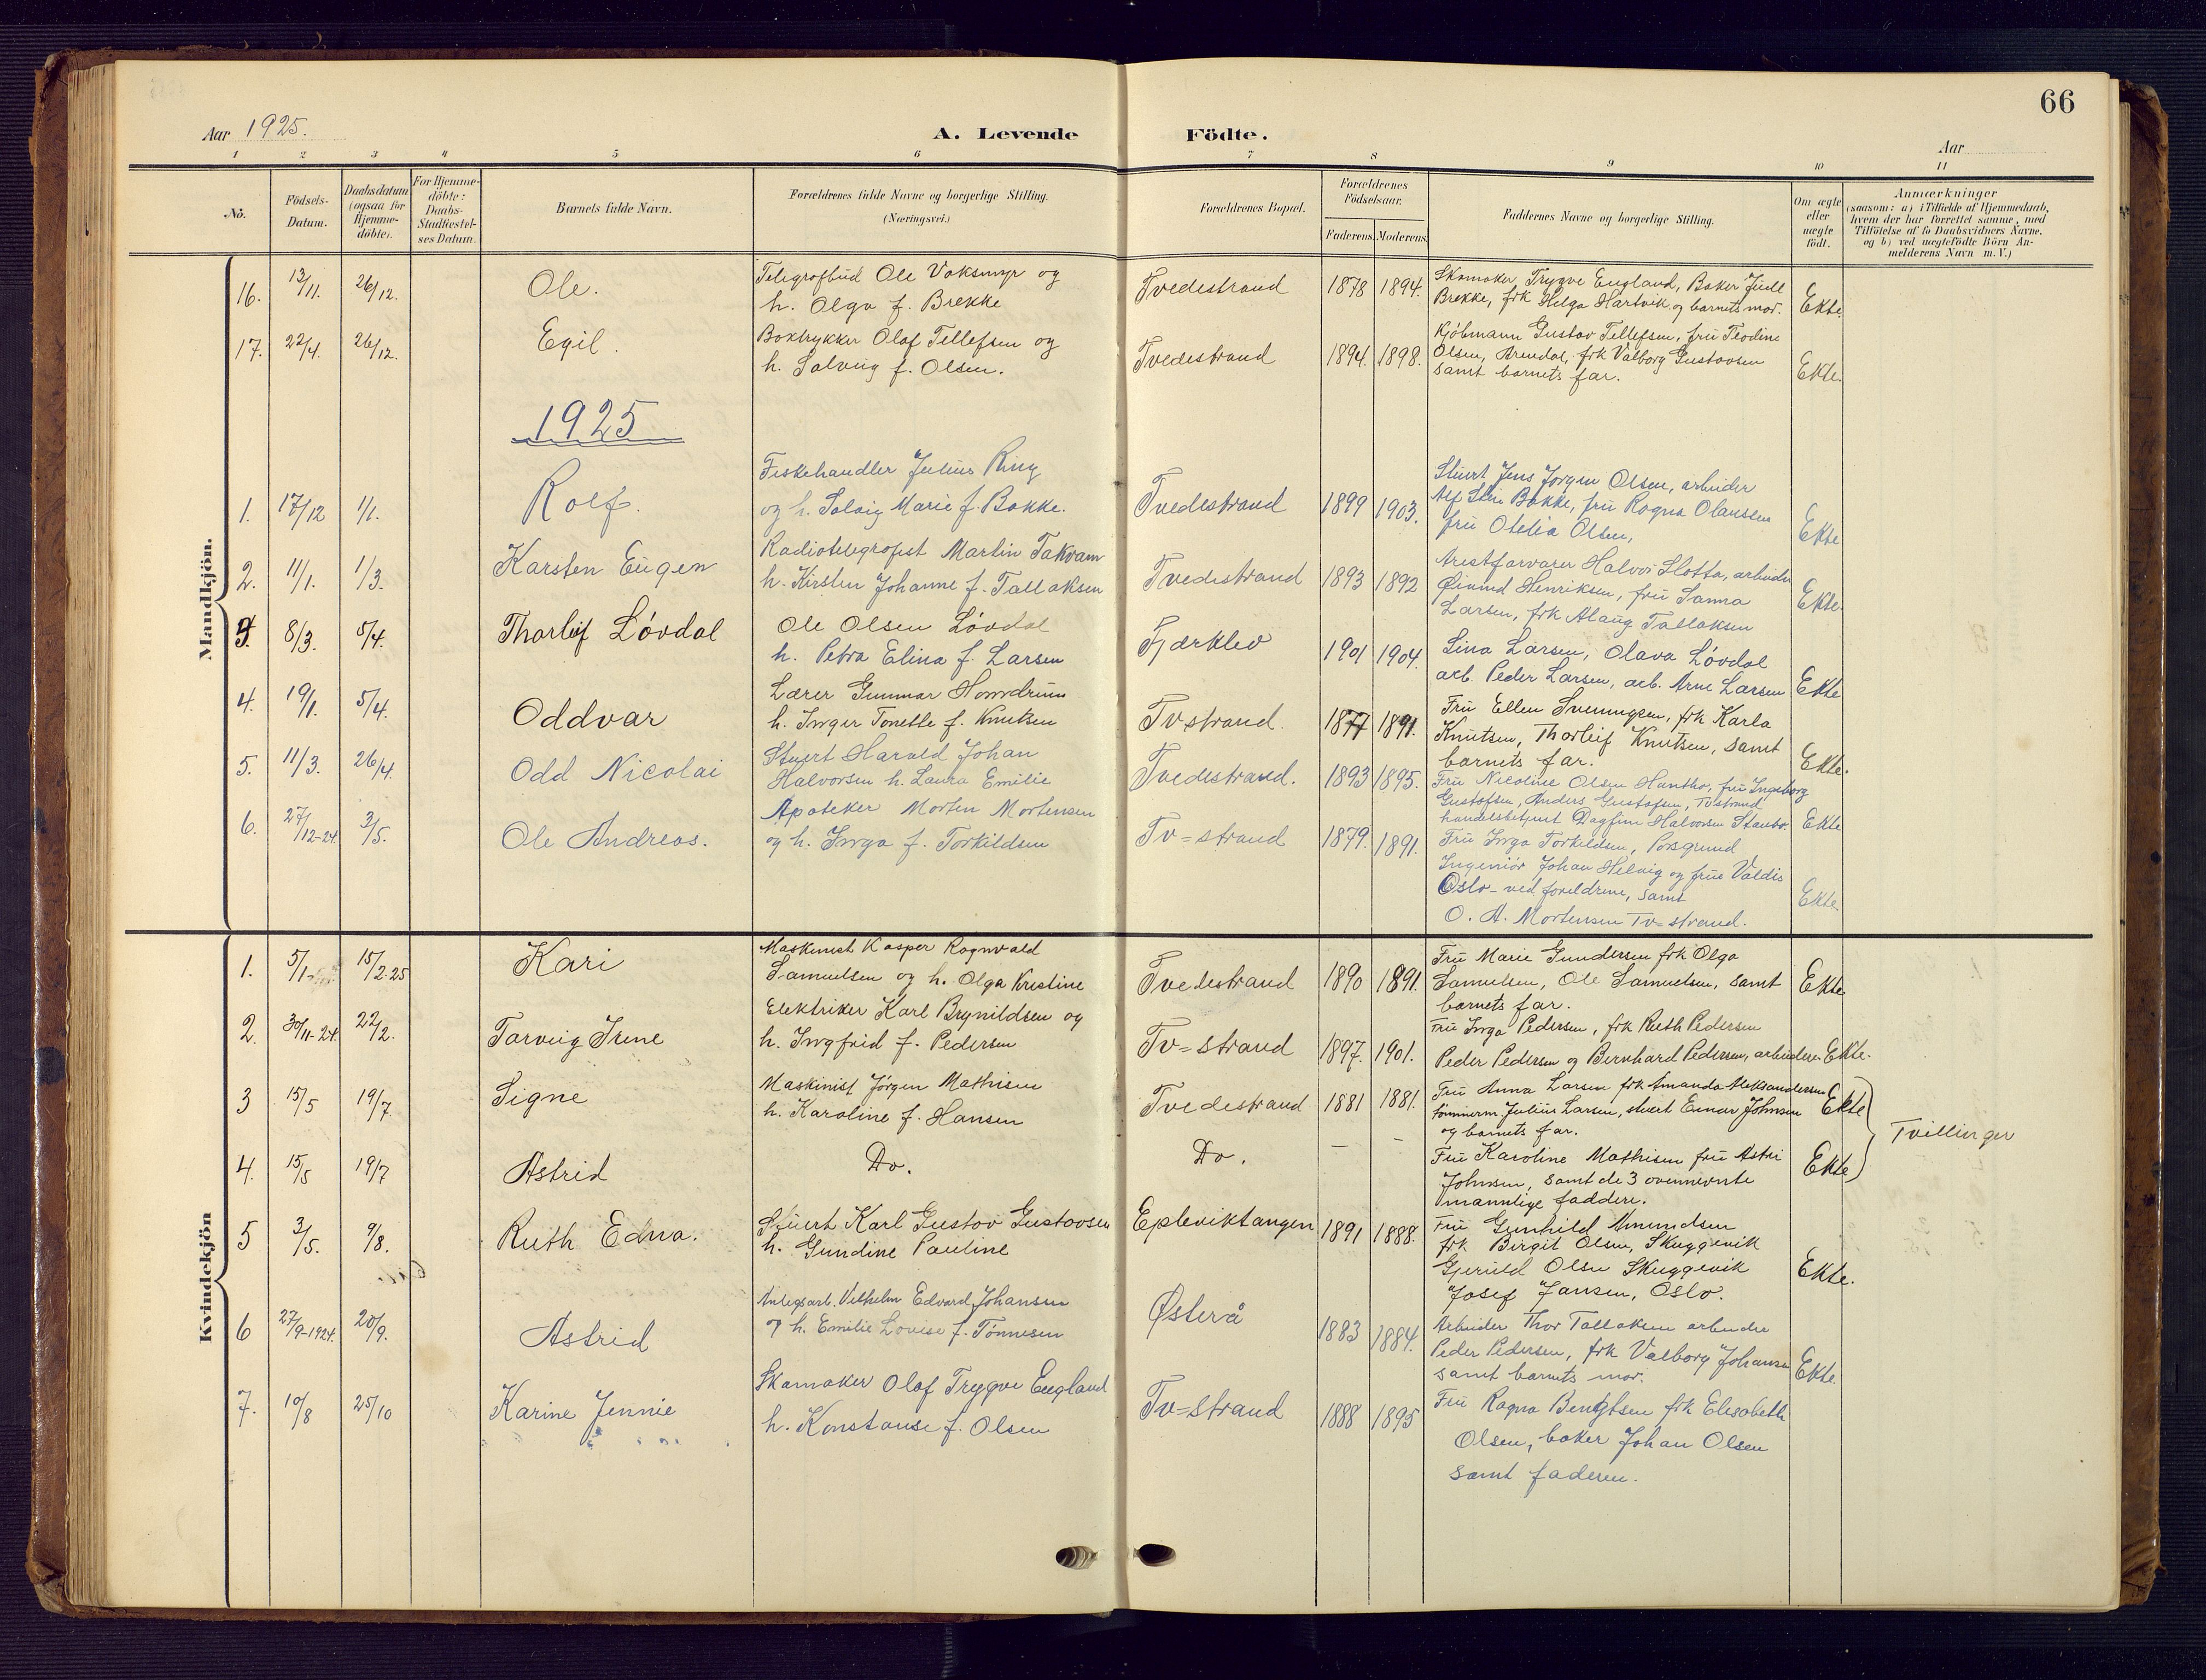 66
Aar 1925.
A. Levende Födte.
Aar
1 2 3 4 5 6 7 8 9 10 11
No.
Födsels-
Datum.
Daabsdatum
(ogsaa for
Hjemme-
döbte).
For Hjemme-
döbte:
Daabs-
Stadfæstel-
ses Datum.
Barnets fulde Navn.
Forældrenes fulde Navne og borgerlige Stilling.
(Næringsvei.)
Forældrenes Bopæl.
Forældrenes
Födselsaar.
Faderens Moderens
Faddernes Navne og borgerlige Stilling.
Om ægte
eller
uægte
födt.
Anmærkninger
(saasom: a) i Tilfælde af Hjemmedaab,
hvem der har forrettet samme, med
Tilföielse af to Daabsvidners Navne,
og b) ved uægtefödte Börn An-
melderens Navn m. V.)
Mandkjön.
16. 13/11. 26/12. Ole.
Telegrafbud Ole Voksmyr og
h. Olga f. Brekke
Tvedestrand 1878 1894.
Skomaker Trygve Eugland, Baker Juell
Brekke, frk Helga Hartvik og barnets mor.
Ekte.
17. 22/4. 26/12. Egil.
Boktrykker Olaf Tellefsen og
h. Solveig f. Olsen.
Tvedestrand 1894. 1898.
Kjöbmann Gustav Tellefsen, fru Teodine
Olsen, Arendal, frk Valborg Gustavsen
samt barnets far.
Ekte.
1925
1. 17/12 1/1. Rolf.
Fiskehandler Julius Ring
og h. Solvig Marie f. Bakke.
Tvedestrand 1899 1903.
Stuert Jens Jörgen Olsen, arbeider
Alf Bakke, fru Ragna Olaussen
fru Otelia Olsen,
Ekte
2. 11/1. 1/3. Karsten Eugen
Radiotelegrafist Martin Takvam
h. Kirsten Johanne f. Tallaksen
Tvedestrand 1893 1892
Arestforvarer Halvor Slotta, arbeider
Øivind Henriksen, fru Sanna
Larsen, frk Alaug Tallaksen
Ekte.
3. 8/3. 5/4. Thorleif Lövdal
Ole Olsen Lövdal
h. Petra Elina f. Larsen
Fjærklev 1901 1904.
Lina Larsen, Olava Lövdal
arb. Peder Larsen, arb. Arne Larsen
Ekte
4. 19/1. 5/4. Oddvar
Lærer Gunnar Homdrum
h. Inger Tonette f. Knutsen
Tvstrand. 1877 1891.
Fru Ellen Svenungsen, frk Karla
Knutsen, Thorleif Knutsen, samt
barnets far.
Ekte.
5. 11/3. 26/4. Odd Nicolai
Stuert Harald Johan
Halvorsen h. Laura Emilie
Tvedestrand. 1893 1895.
Fru Nicoline Olsen Hantho, fru Ingeborg
Gustafsen, Anders Gustafsen, Tvstrand
handelsbetjent Dagfinn Halvorsen Staubo.
Ekte
6. 27/12-24. 3/5. Ole Andreas.
Apoteker Morten Mortensen
og h. Inga f. Torkildsen
Tv=strand 1879. 1891.
Fru Inga Torkildsen, Porsgrund
Ingeniör Johan Helvig og frue Valdis
Oslo- ved foreldrene, samt
O. A. Mortensen Tv=strand.
Ekte
Kvindekjön
1. 5/1- 15/2.25 Kari
Maskinist Kasper Ragnvald
Samuelsen og h. Olga Kristine
Tvedestrand 1890 1891.
Fru Marie Gundersen frk Olga
Samuelsen, Ole Samuelsen, samt
barnets far.
Ekte
2. 30/11-24. 22/2. Torveig Irene
Elektriker Karl Brynildsen og
h. Ingfrid f. Pedersen
Tv=strand 1897. 1901.
Fru Inga Pedersen, frk Ruth Pedersen
Peder Pedersen og Bernhard Pedersen, arbeidere.
Ekte.
3 15/5 19/7 Signe
Maskinist Jörgen Mathisen
h. Karoline f. Hansen
Tvedestrand 1881 1881.
Fru Anna Larsen frk Amanda Aleksandersen
tömmerm. Julius Larsen, stuert Einar Johnsen
og barnets far.
Ekte
Tvillinger
4. 15/5 19/7 Astrid
Do. Do. — —
Fru Karoline Mathisen fru Astri
Johnsen, samt de 3 ovennevnte
mannlige faddere.
Ekte
5 3/5. 9/8. Ruth Edna.
Stuert Karl Gustav Gustavsen
h. Gundine Pauline
Epleviktangen 1891 1888.
Fru Gunhild Amundsen
frk Birgit Olsen, Skuggevik
Gjeruld Olsen Skuggevik
Josef Jansen, Oslo.
Ekte.
6 27/9-1924. 20/9. Astrid
Anlegsarb. Vilhelm Edvard Johansen
og h. Emilie Lovise f. Tönnesen
Østerå 1883 1884.
Arbeider Thor Tallaksen arbeider
Peder Pedersen, frk Valborg Johansen
samt barnets mor.
Ekte.
7. 10/8 25/10 Karine Jennie
Skomaker Olaf Trygve Eugland
h. Konstanse f. Olsen
Tv=strand 1888 1895
Fru Ragna Bengtsen frk Elisabeth
Olsen, baker Johan Olsen
samt faderen.